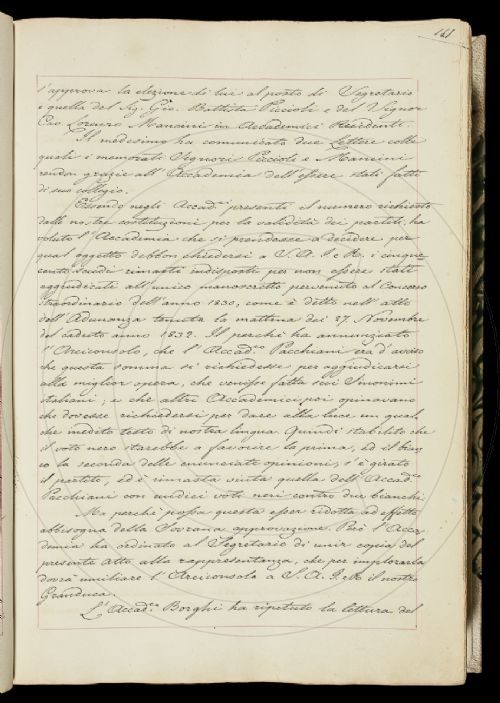 161
s'approva la elezione di lui al posto di Segretario
e quella del Sig. Gio. Battista Piccioli e del Signor
Cav. Lorenzo Mancini in Accademici Residenti.
Il medesimo ha comunicato due Lettere colle
quali i memorati Signori Piccioli e Mancini
rendon grazie all'Accademia dell'essere stati fatti
di suo collegio.
Essendo negli Accad.ci presenti il numero richiesto
dalle nostre costituzioni per la validità dei partiti, ha
voluto l'Accademia che si prendesse a decidere per
qual oggetto debbon chiedersi a S. A. I. e R. i cinque
cento scudi rimasti indisposti per non essere stati
aggiudicati all'unico manoscritto pervenuto al Concorso
straordinario dell'anno 1830, come è detto nell'atto
dell'Adunanza tenuta la mattina dei 27. Novembre
del caduto anno 1832. Il perchè ha annunziato
l'Arciconsolo, che l'Accad.co Pacchiani era d'avviso
che questa somma si richiedesse per aggiudicarsi
alla miglior opera, che venisse fatta sui Sinonimi
italiani; e che altri Accademici poi opinavano
che dovesse richiedersi per dare alla luce un qual
che inedito testo di nostra lingua. Quindi stabilito che
il voto nero starebbe a favorire la prima, ed il bian
co la seconda delle enunciate opinioni, s'è girato
il partito, ed è rimasta vinta quella dell'Accad.co
Pacchiani con undici voti neri contro due bianchi.
Ma perchè possa questa esser ridotta ad effetto
abbisogna della Sovrana approvazione. Però l'Acca-
demia ha ordinato al Segretario di unir copia del
presente atto alla rappresentanza, che per implorarla
dovrà umiliare l'Arciconsolo a S. A. I. e R. il nostro
Granduca.
L'Accad.co Borghi ha ripetuto la lettura del